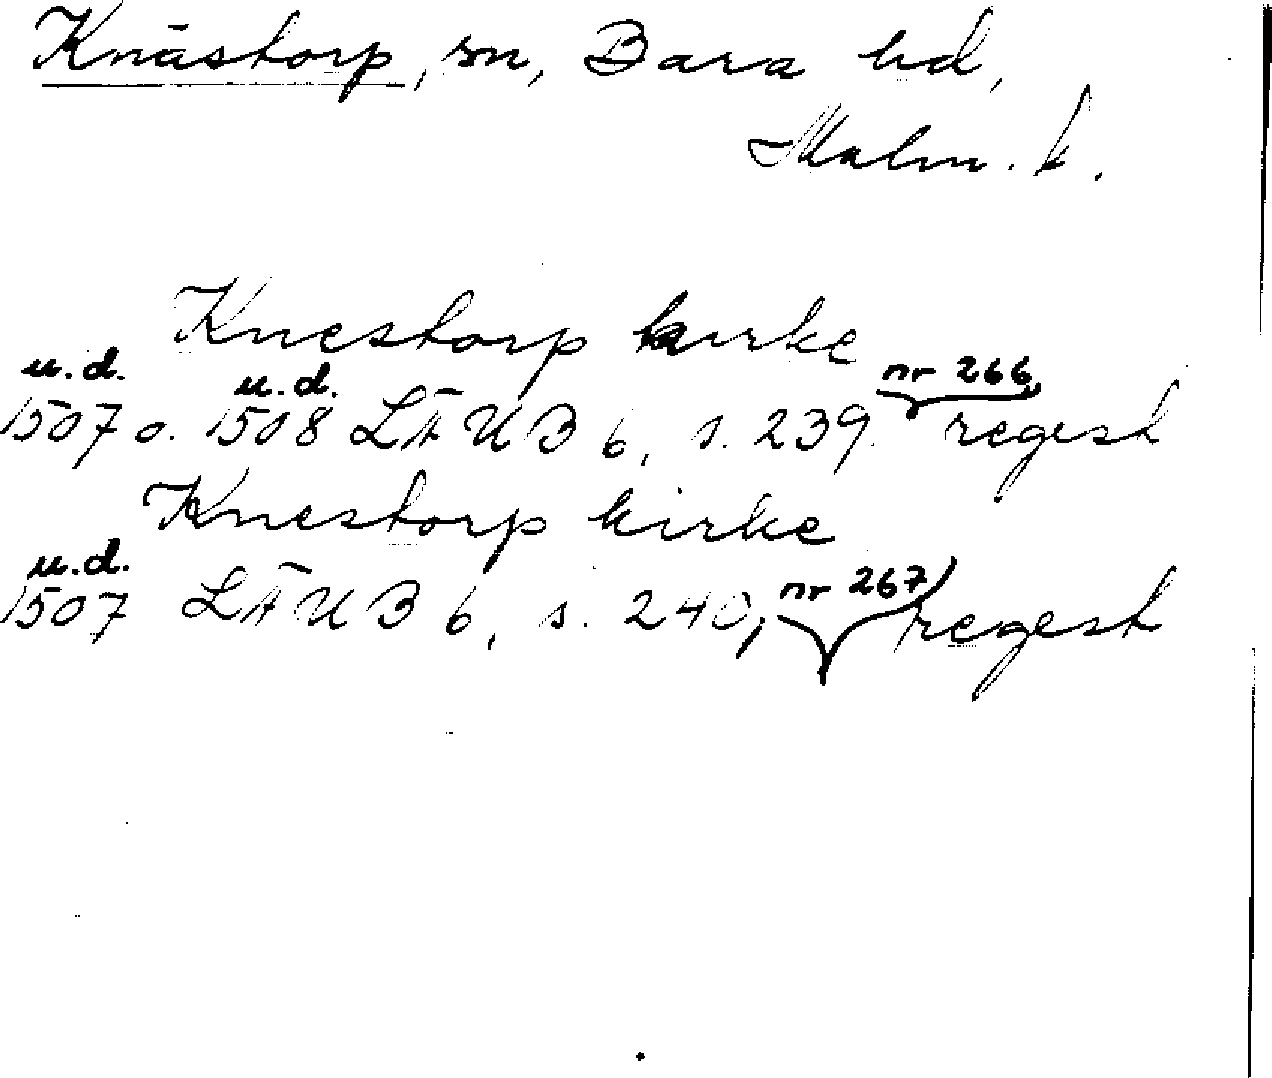 Knästorp, sn, Bara hd,
Malm. l.
Knestorp kirke
u.d. u.d. nr 266,
1507 o. 1508 LÄUB 6, s. 239. regest
Knestorp kirke
u.d. nr 267,
1507 LÄUB 6, s. 240, regest